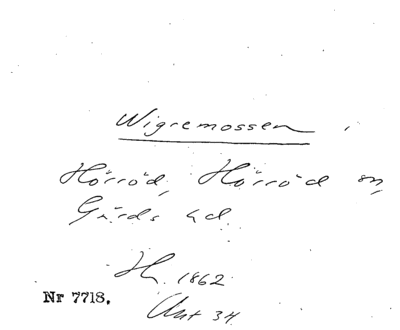 Wigremossen i
Hörröd, Hörröd sn,
Gärds hd.
H. 1862
Nr 7718.
Akt 34